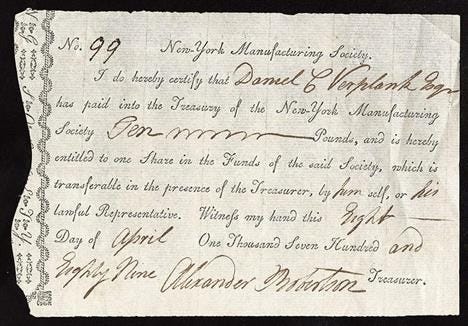 No. 99 New-York Manufacturing Society.
I do hereby certify that Daniel C Verplank Esqr
has paid into the Treasury of the New-York Manufacturing
Society Ten Pounds, and is hereby
entitled to one Share in the Funds of the said Society, which is
transferable in the presence of the Treasurer, by him self, or his
lawful Representative. Witneſs my hand this Eight
Day of April One Thousand Seven Hundred and
Eighty Nine Alexander Robertson Treasurer.